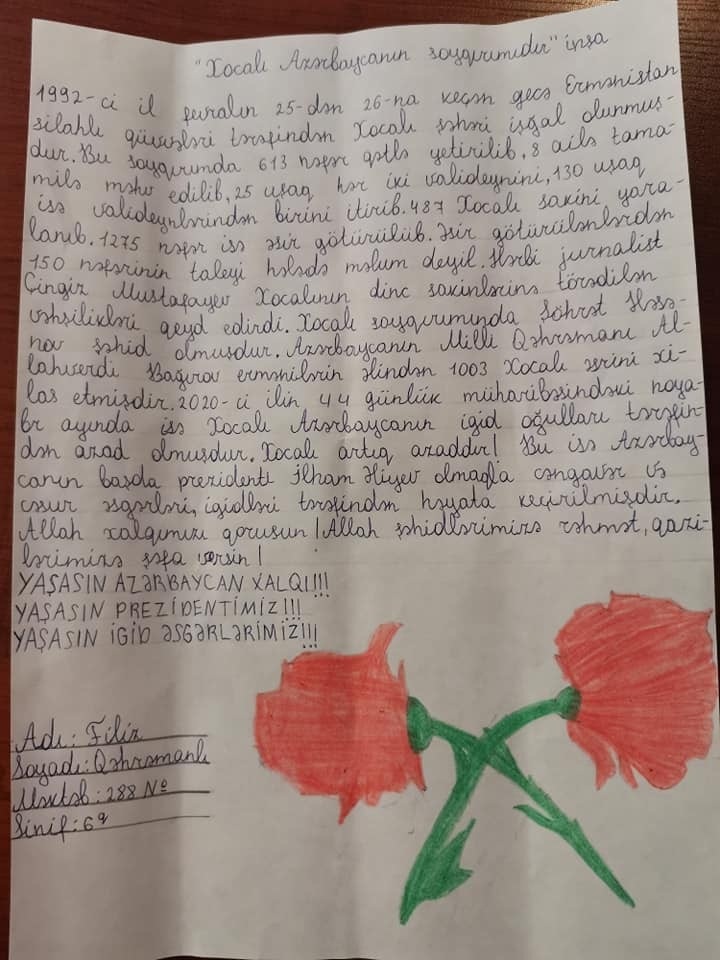 "Xocalı Azərbaycanın soyqırımıdır" inşa
1992-ci il fevralın 25-dən 26-na keçən gecə Ermənistan
silahlı qüvvələri tərəfindən Xocalı şəhəri işğal olunmuş-
dur. Bu soyqırımda 613 nəfər qətlə yetirilib, 8 ailə tama-
milə məhv edilib, 25 uşaq hər iki valideynini, 130 uşaq
isə valideynlərindən birini itirib. 487 Xocalı sakini yara-
lanıb. 1275 nəfər isə əsir götürülüb. Əsir götürülənlərdən
150 nəfərinin taleyi hələdə məlum deyil. Hərbi jurnalist
Çingiz Mustafayev Xocalının dinc sakinlərinə törədilən
vəhşilikləri qeyd edirdi. Xocalı soyqırımında Şöhrət Həsə-
nov şəhid olmuşdur. Azərbaycanın Milli Qəhrəmanı Al-
lahverdi Bağırov ermənilərin əlindən 1003 Xocalı əsirini xi-
las etmişdir. 2020-ci ilin 44 günlük müharibəsindəki noya-
br ayında isə Xocalı Azərbaycanın igid oğulları tərəfin-
dən azad olmuşdur. Xocalı artıq azaddır! Bu isə Azərbay-
canın başda prezidenti İlham Əliyev olmaqla cəngavər və
cəsur əsgərləri, igidləri tərəfindən həyata keçirilmişdir.
Allah xalqımızı qorusun! Allah şəhidlərimizə rəhmət, qazi-
lərimizə şəfa versin!
YAŞASIN AZƏRBAYCAN XALQI!!!
YAŞASIN PREZİDENTİMİZ!!!
YAŞASIN İGİD ƏSGƏRLƏRİMİZ!!!
Adı: Filiz
Soyadı: Qəhrəmanlı
Məktəb: 288 №
Sinif: 6q